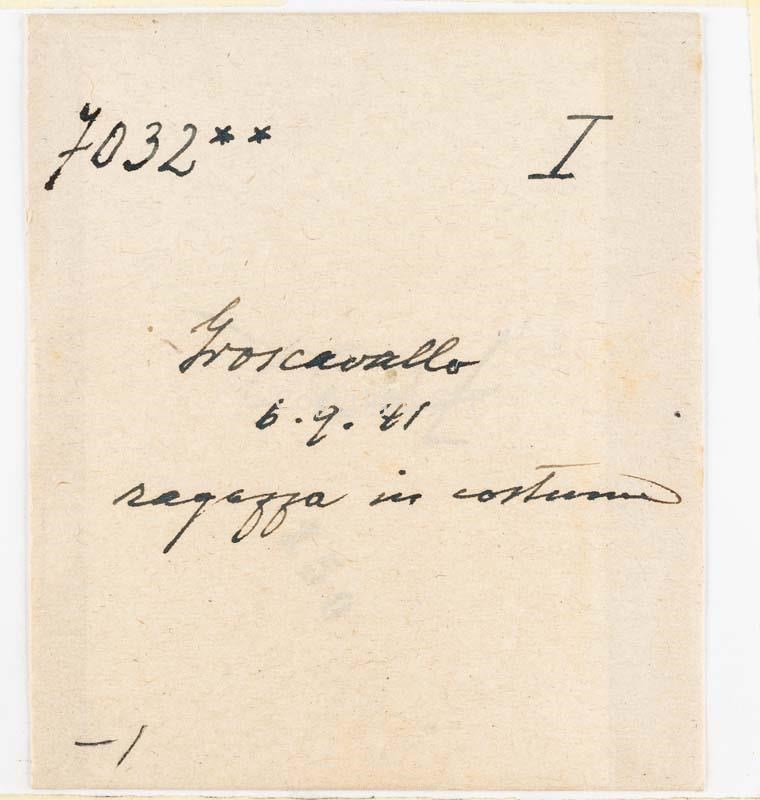 7032** I
Groscavallo
6.9.41
ragazza in costume
-1